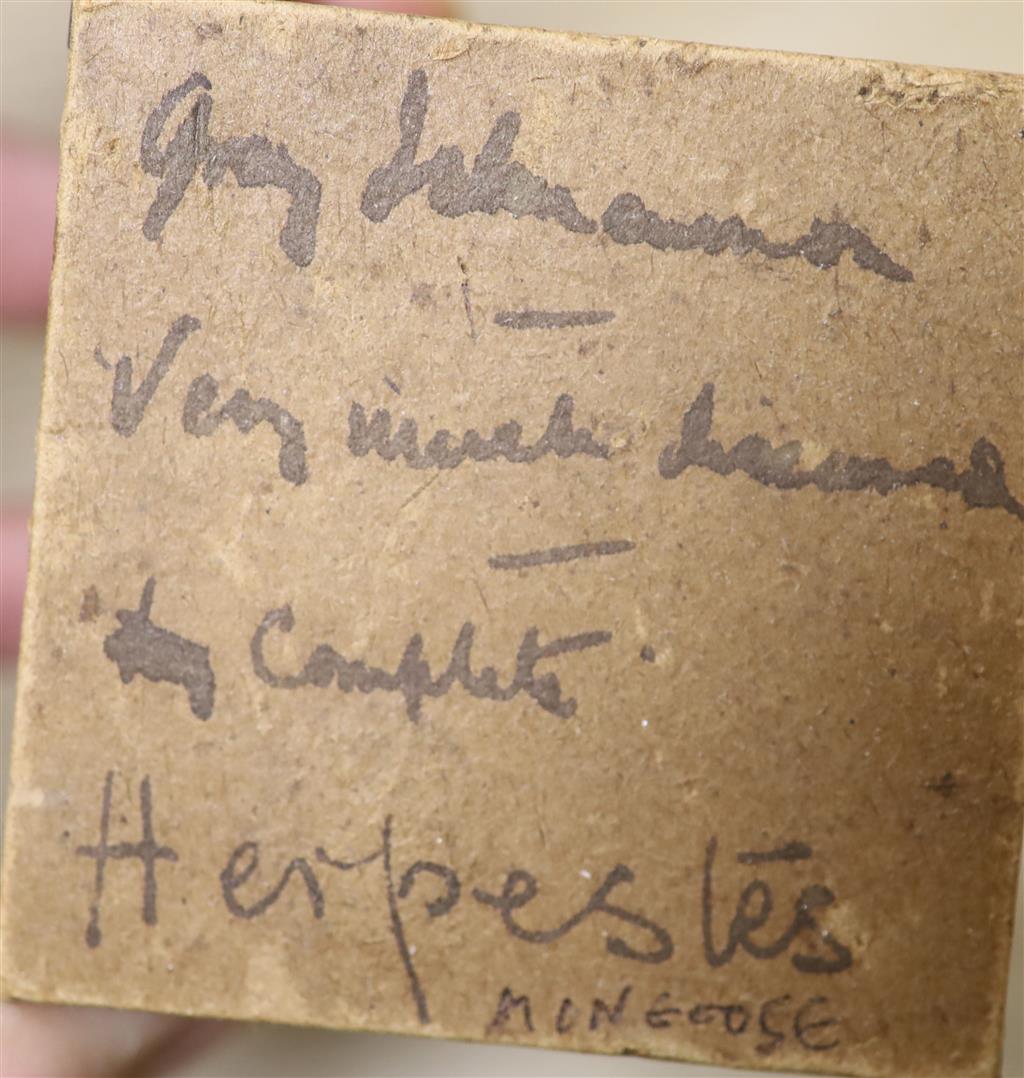 Grey Ichneumon
Very much diseased
Complete
Herpestes
MONGOOSE